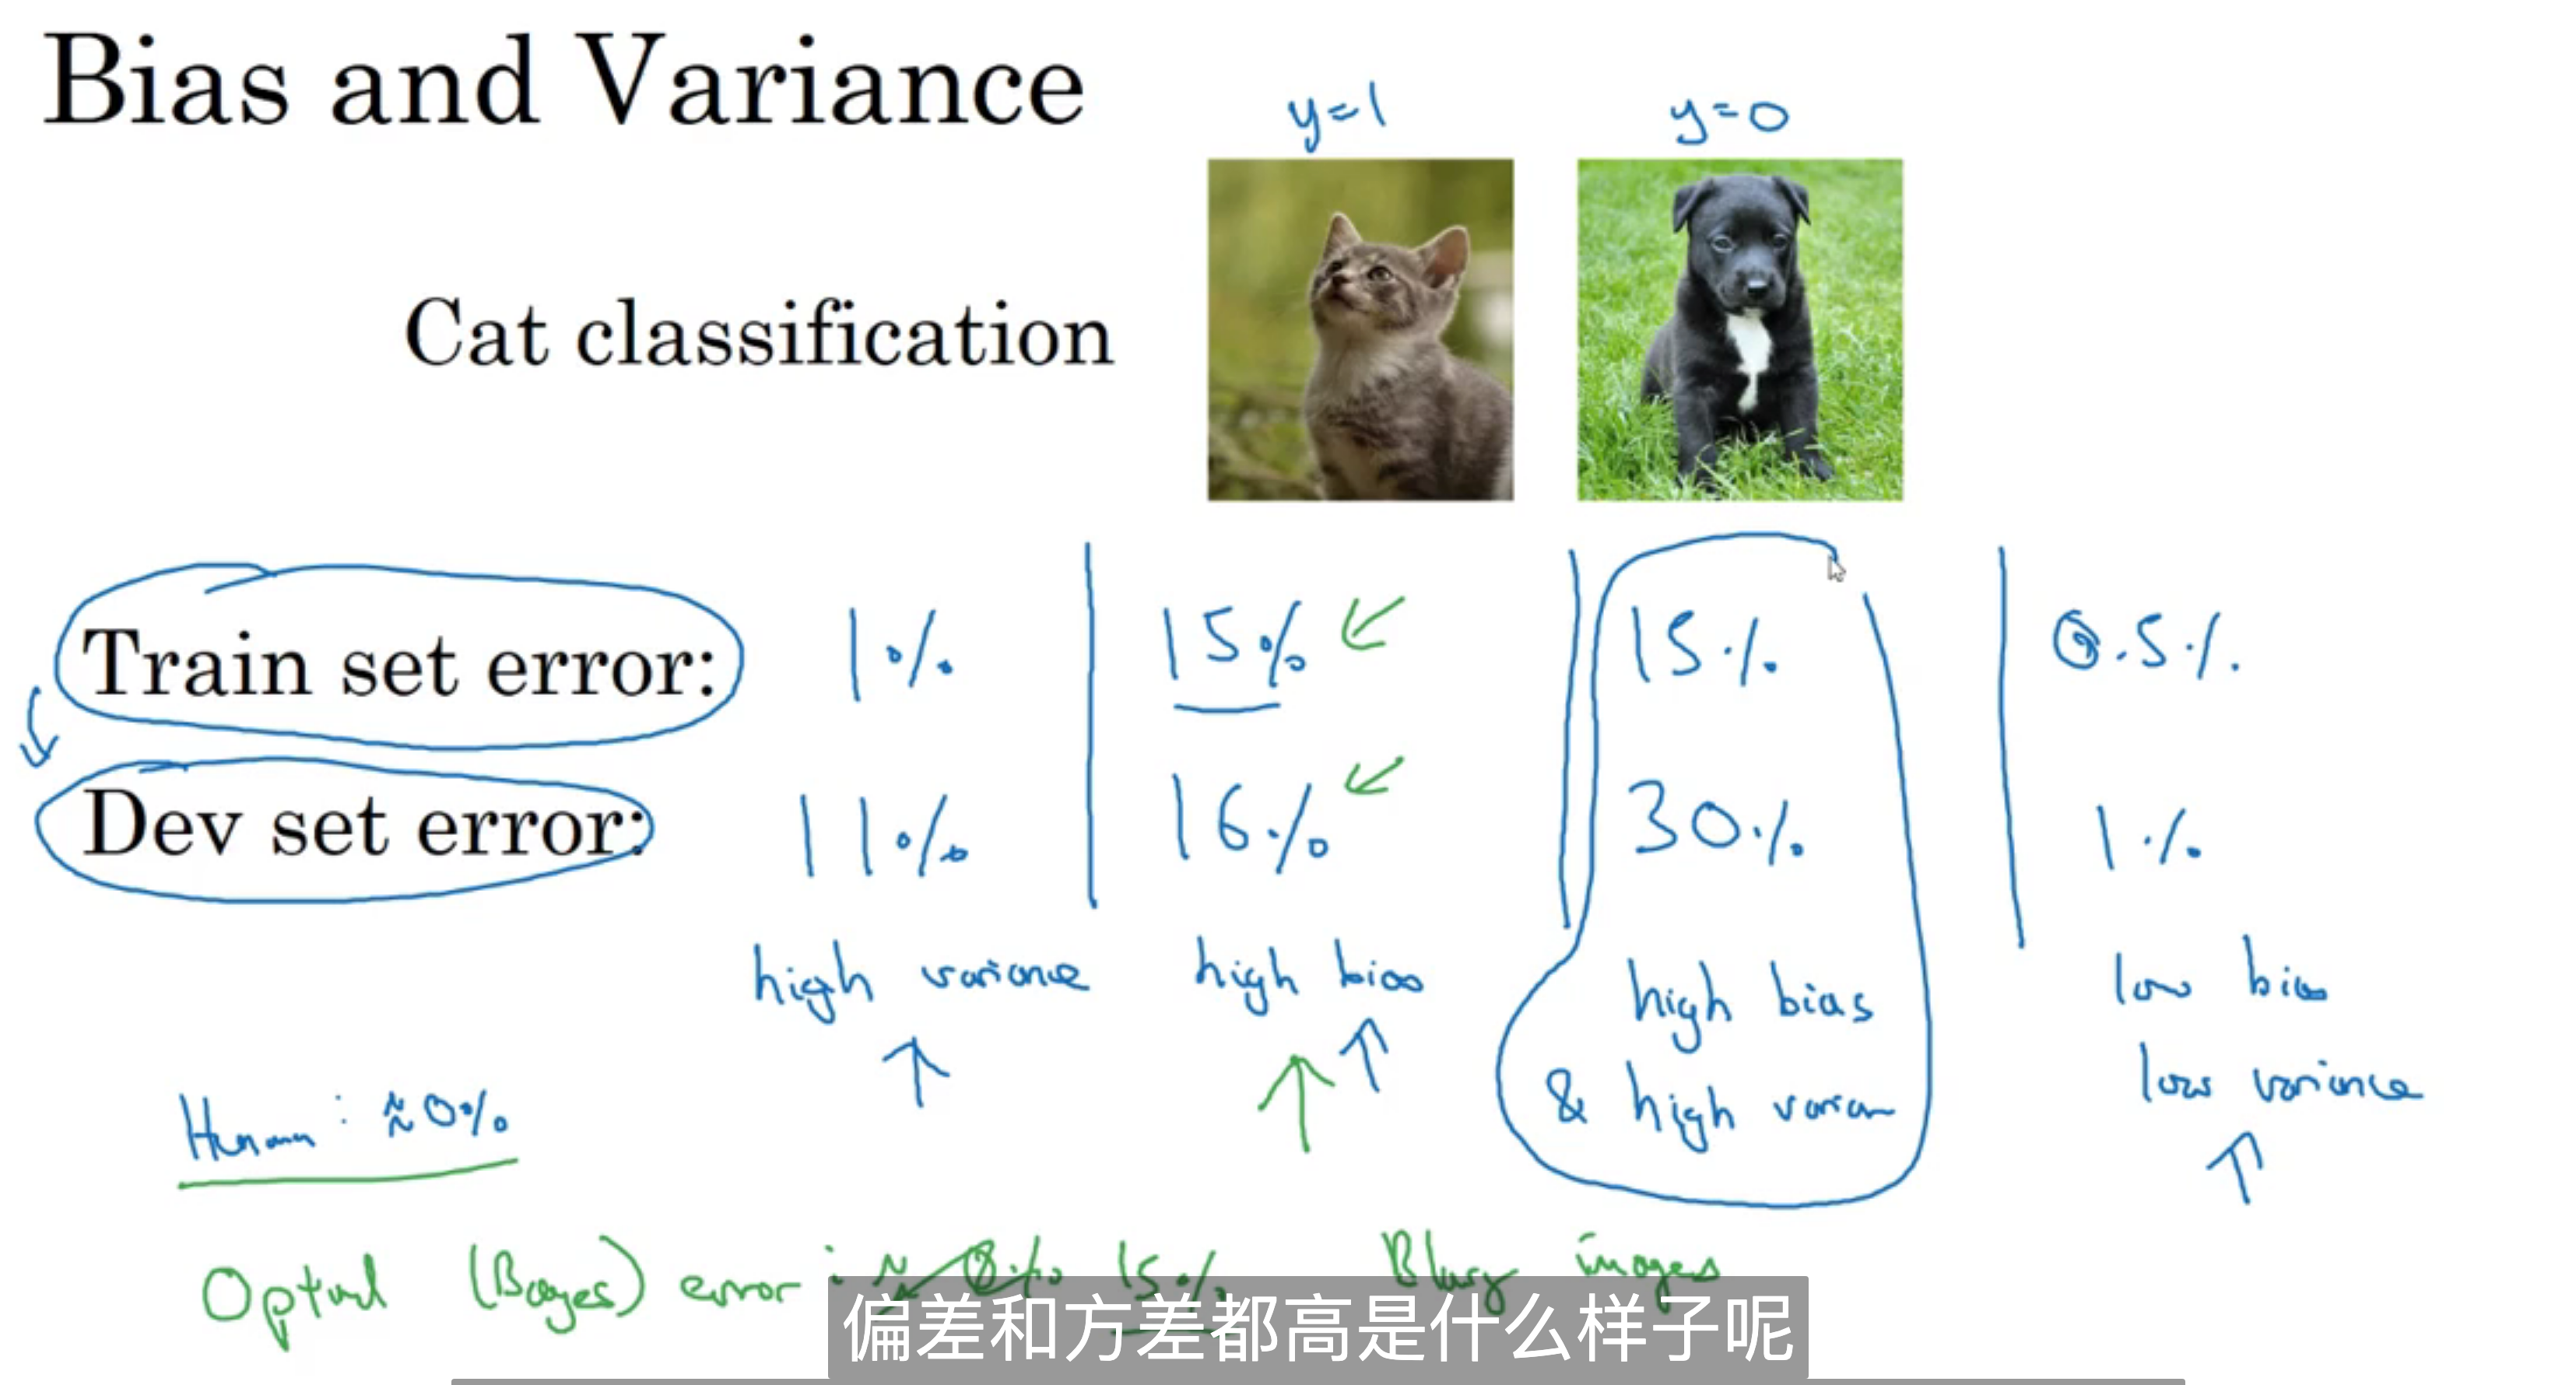 Bias and Variance
y=1
y=0
Cat classification
Train set error:
1%
15%
15%
0.5%
Dev set error:
11%
16%
30%
1%
high variance
high bias
high bias
& high varian
low bias
low variance
Human: ≈0%
Optimal (Bayes) error: ≈ 0% 15%
Blurry images
偏差和方差都高是什么样子呢